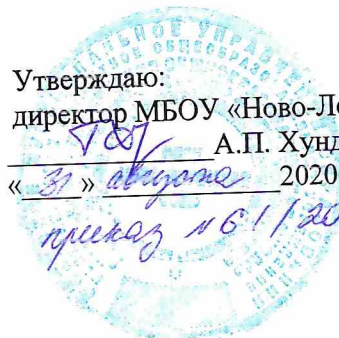 Утверждаю:
директор МБОУ «Ново-Ле
А.П. Хунд
« 31 » августа 2020
приказ № 61/20